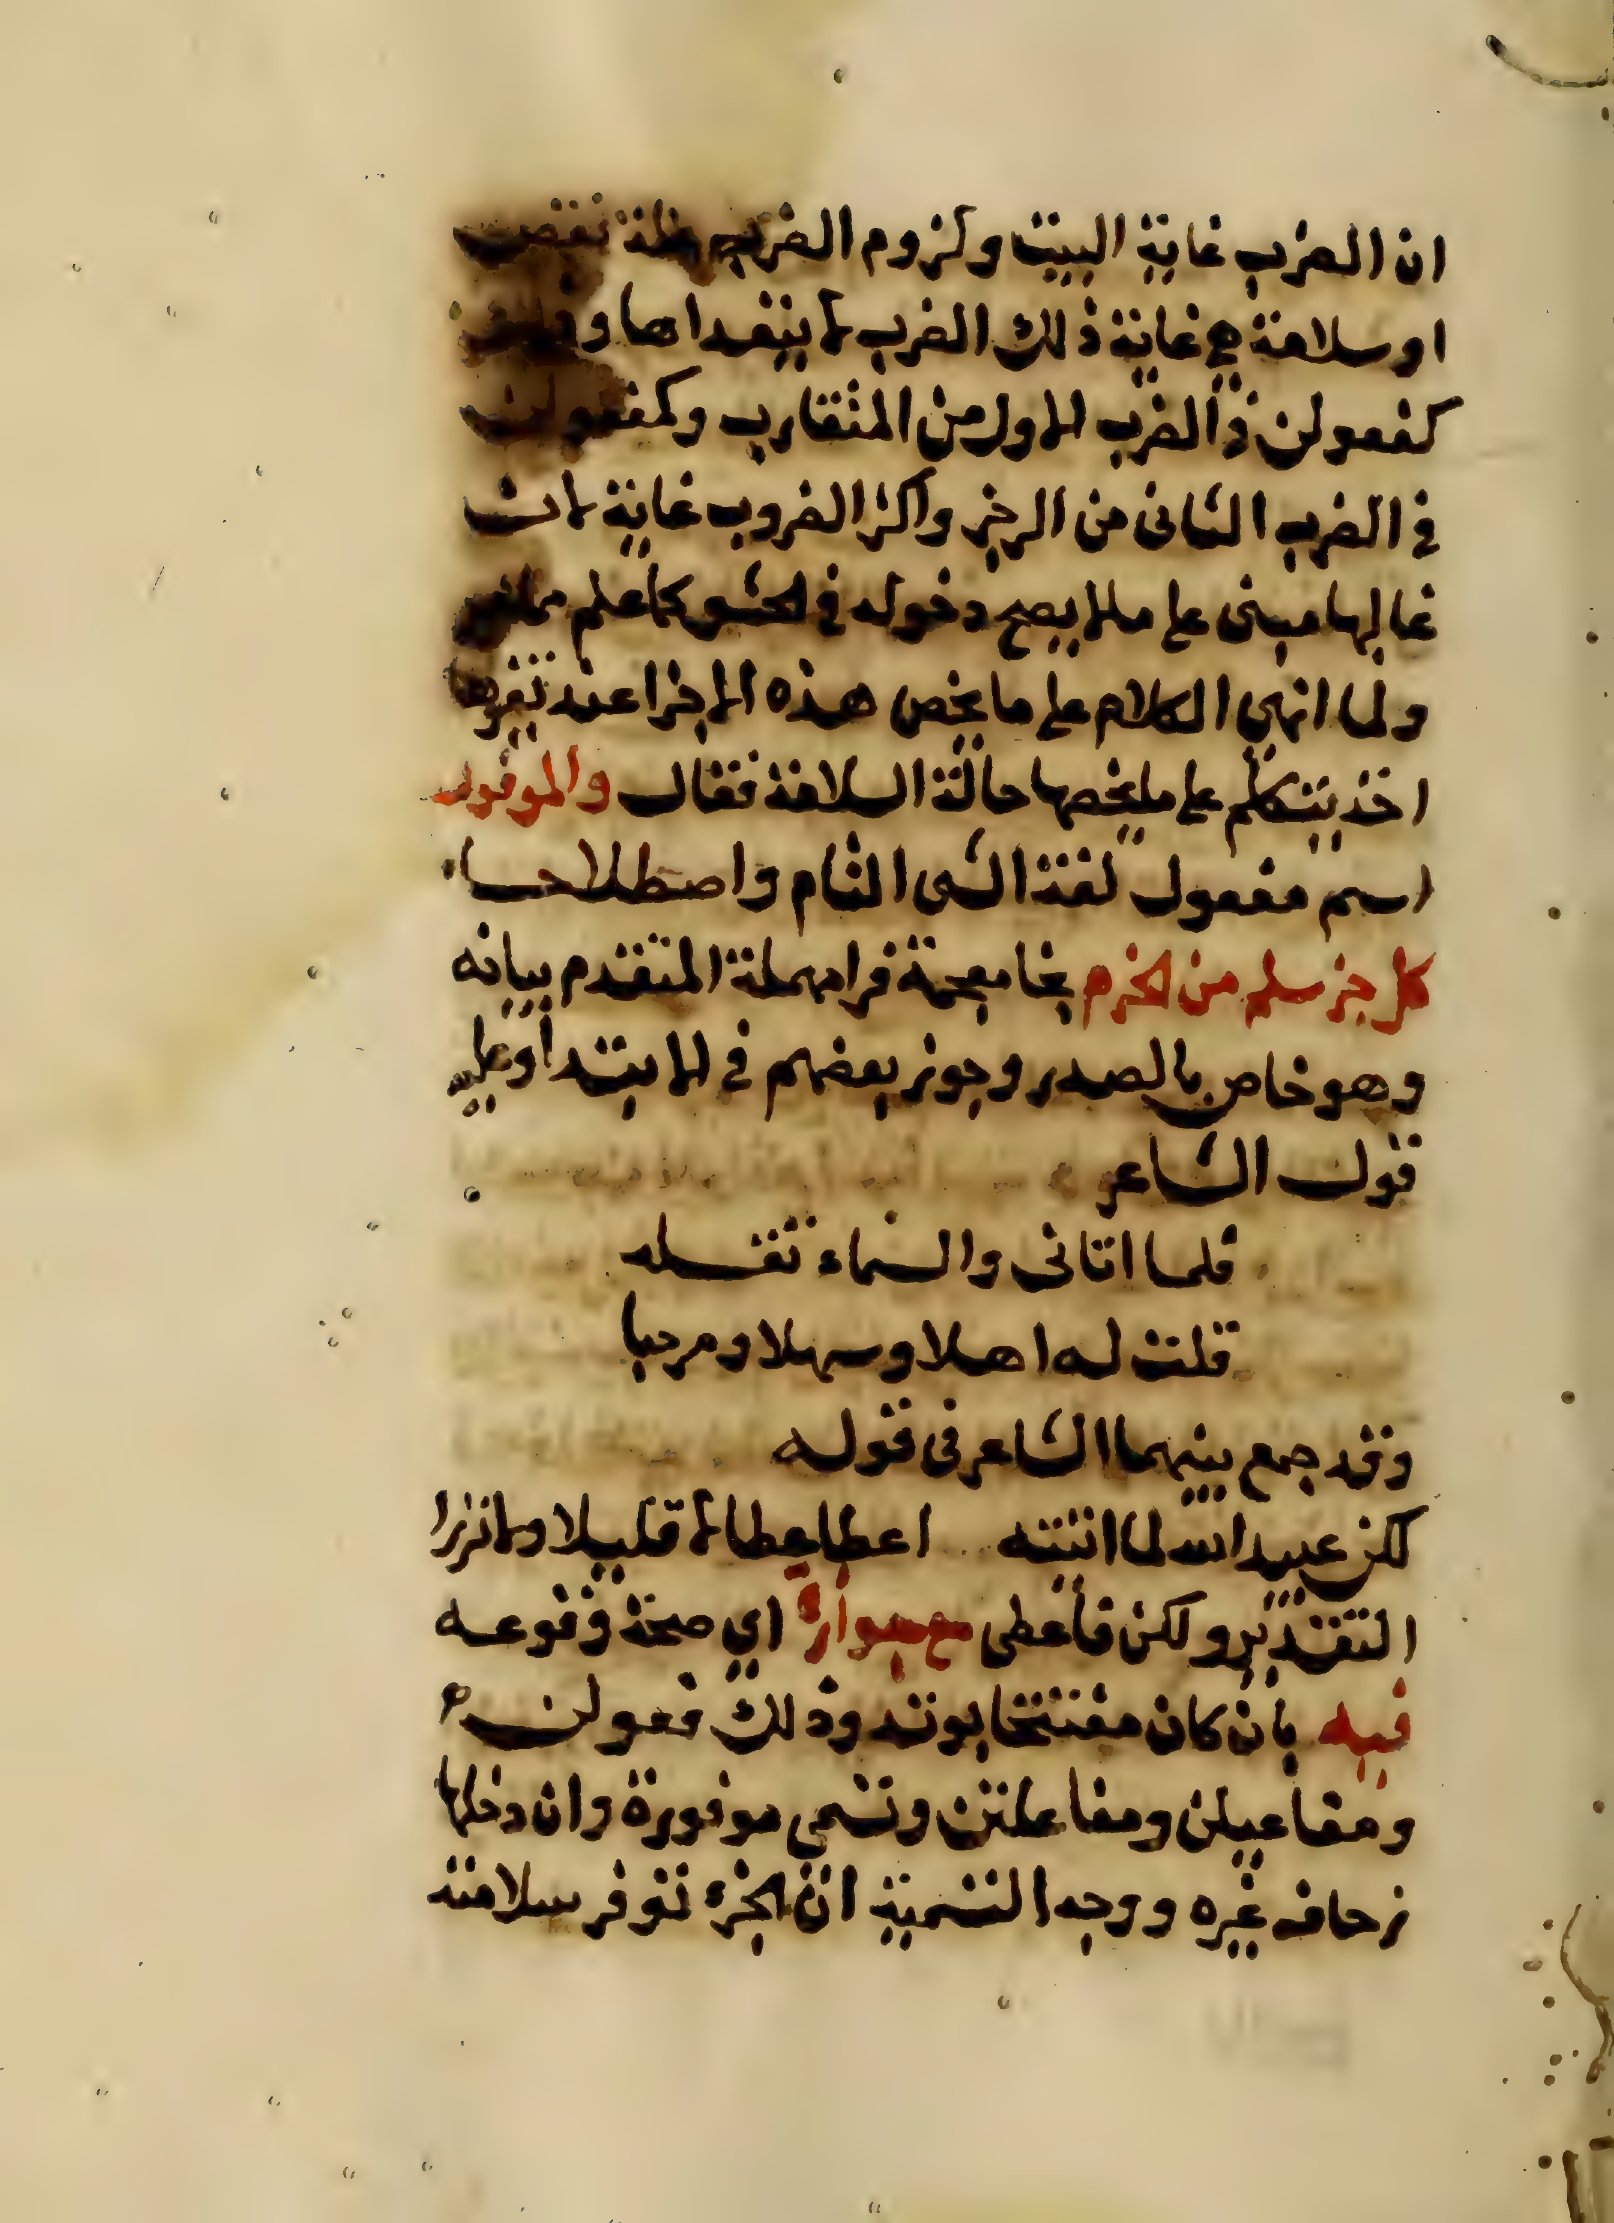 ان الضرب غاية البيت ولزوم الضرب
او سلامة هي غاية ذلك الضرب لا يتعداها
كفعولن في الضرب الاول من المتقارب
في الضرب الثاني من الرجز واكثر الضروب غاية لان
غالبها مبني على ما لا يصح دخوله في الحشو كما علم
ولما انهى الكلام على ما يخص هذه الاجزا عند تغيرها
اخذ يتكلم على ما يخصها حالة السلامة فقال والموفور
اسم مفعول لغة الشي التام واصطلاحا
كل جز سلم من الخرم بخا معجمة فرا مهملة المتقدم بيانه
وهو خاص بالصدر وجوز بعضهم في الابتدا وعليه
قول الشاعر
فلما اتاني والسماء تفسله
قلت له اهلا وسهلا ومرحبا
وقد جمع بينهما الشاعر في قوله
لكن عبيد الله لما اتيته اعطا عطا لا قليلا ولا نزرا
التقدير ولكن فأعطى مع جوازه اي صحة وقوعه
فيه بان كان مفتتحا بوتد وذلك فعولن
ومفاعيلن ومفاعلتن وتسمى موفورة وان دخلها
زحاف غيره ووجه التسمية ان الجزء توفر سلامته